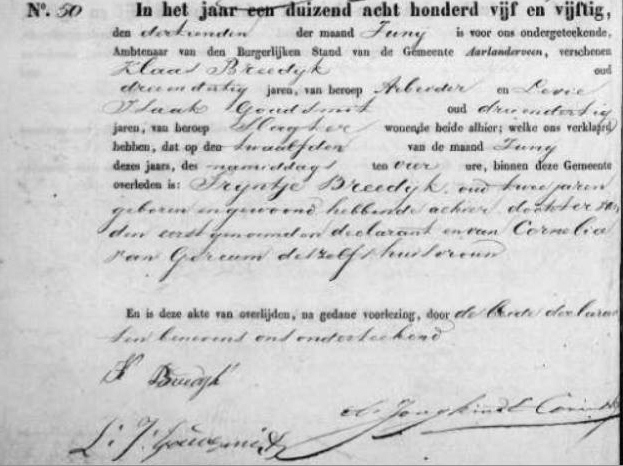 No. 50 In het jaar een duizend acht honderd vijf en vijftig,
den dertienden der maand Junij is voor ons ondergeteekende,
Ambtenaar van den Burgerlijken Stand van de Gemeente Aarlanderveen, verschenen
Klaas Breedijk oud
drieendertig jaren, van beroep Arbeider en Levie
Isaak Goudsmit oud drieendertig
jaren, van beroep Slagter wonende beide alhier; welke ons verklaard
hebben, dat op den twaalfden van de maand Junij
dezes jaars, des namiddags ten vier ure, binnen deze Gemeente
overleden is: Trijntje Breedijk, oud twee jaren
geboren en gewoond hebbende alhier dochter van
den eerstgenoemden declarant en van Cornelia
van Gorcum deszelfs huisvrouw
En is deze akte van overlijden, na gedane voorlezing, door de beide declaran
ten benevens ons onderteekend
K Breedijk
L: I: Goudsmit Jongkindt Coninck